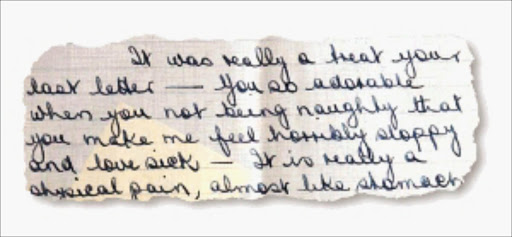 It was really a treat your
last letter — You so adorable
when you not being naughty that
you make me feel horribly sloppy
and love sick — It is really a
physical pain, almost like stomach